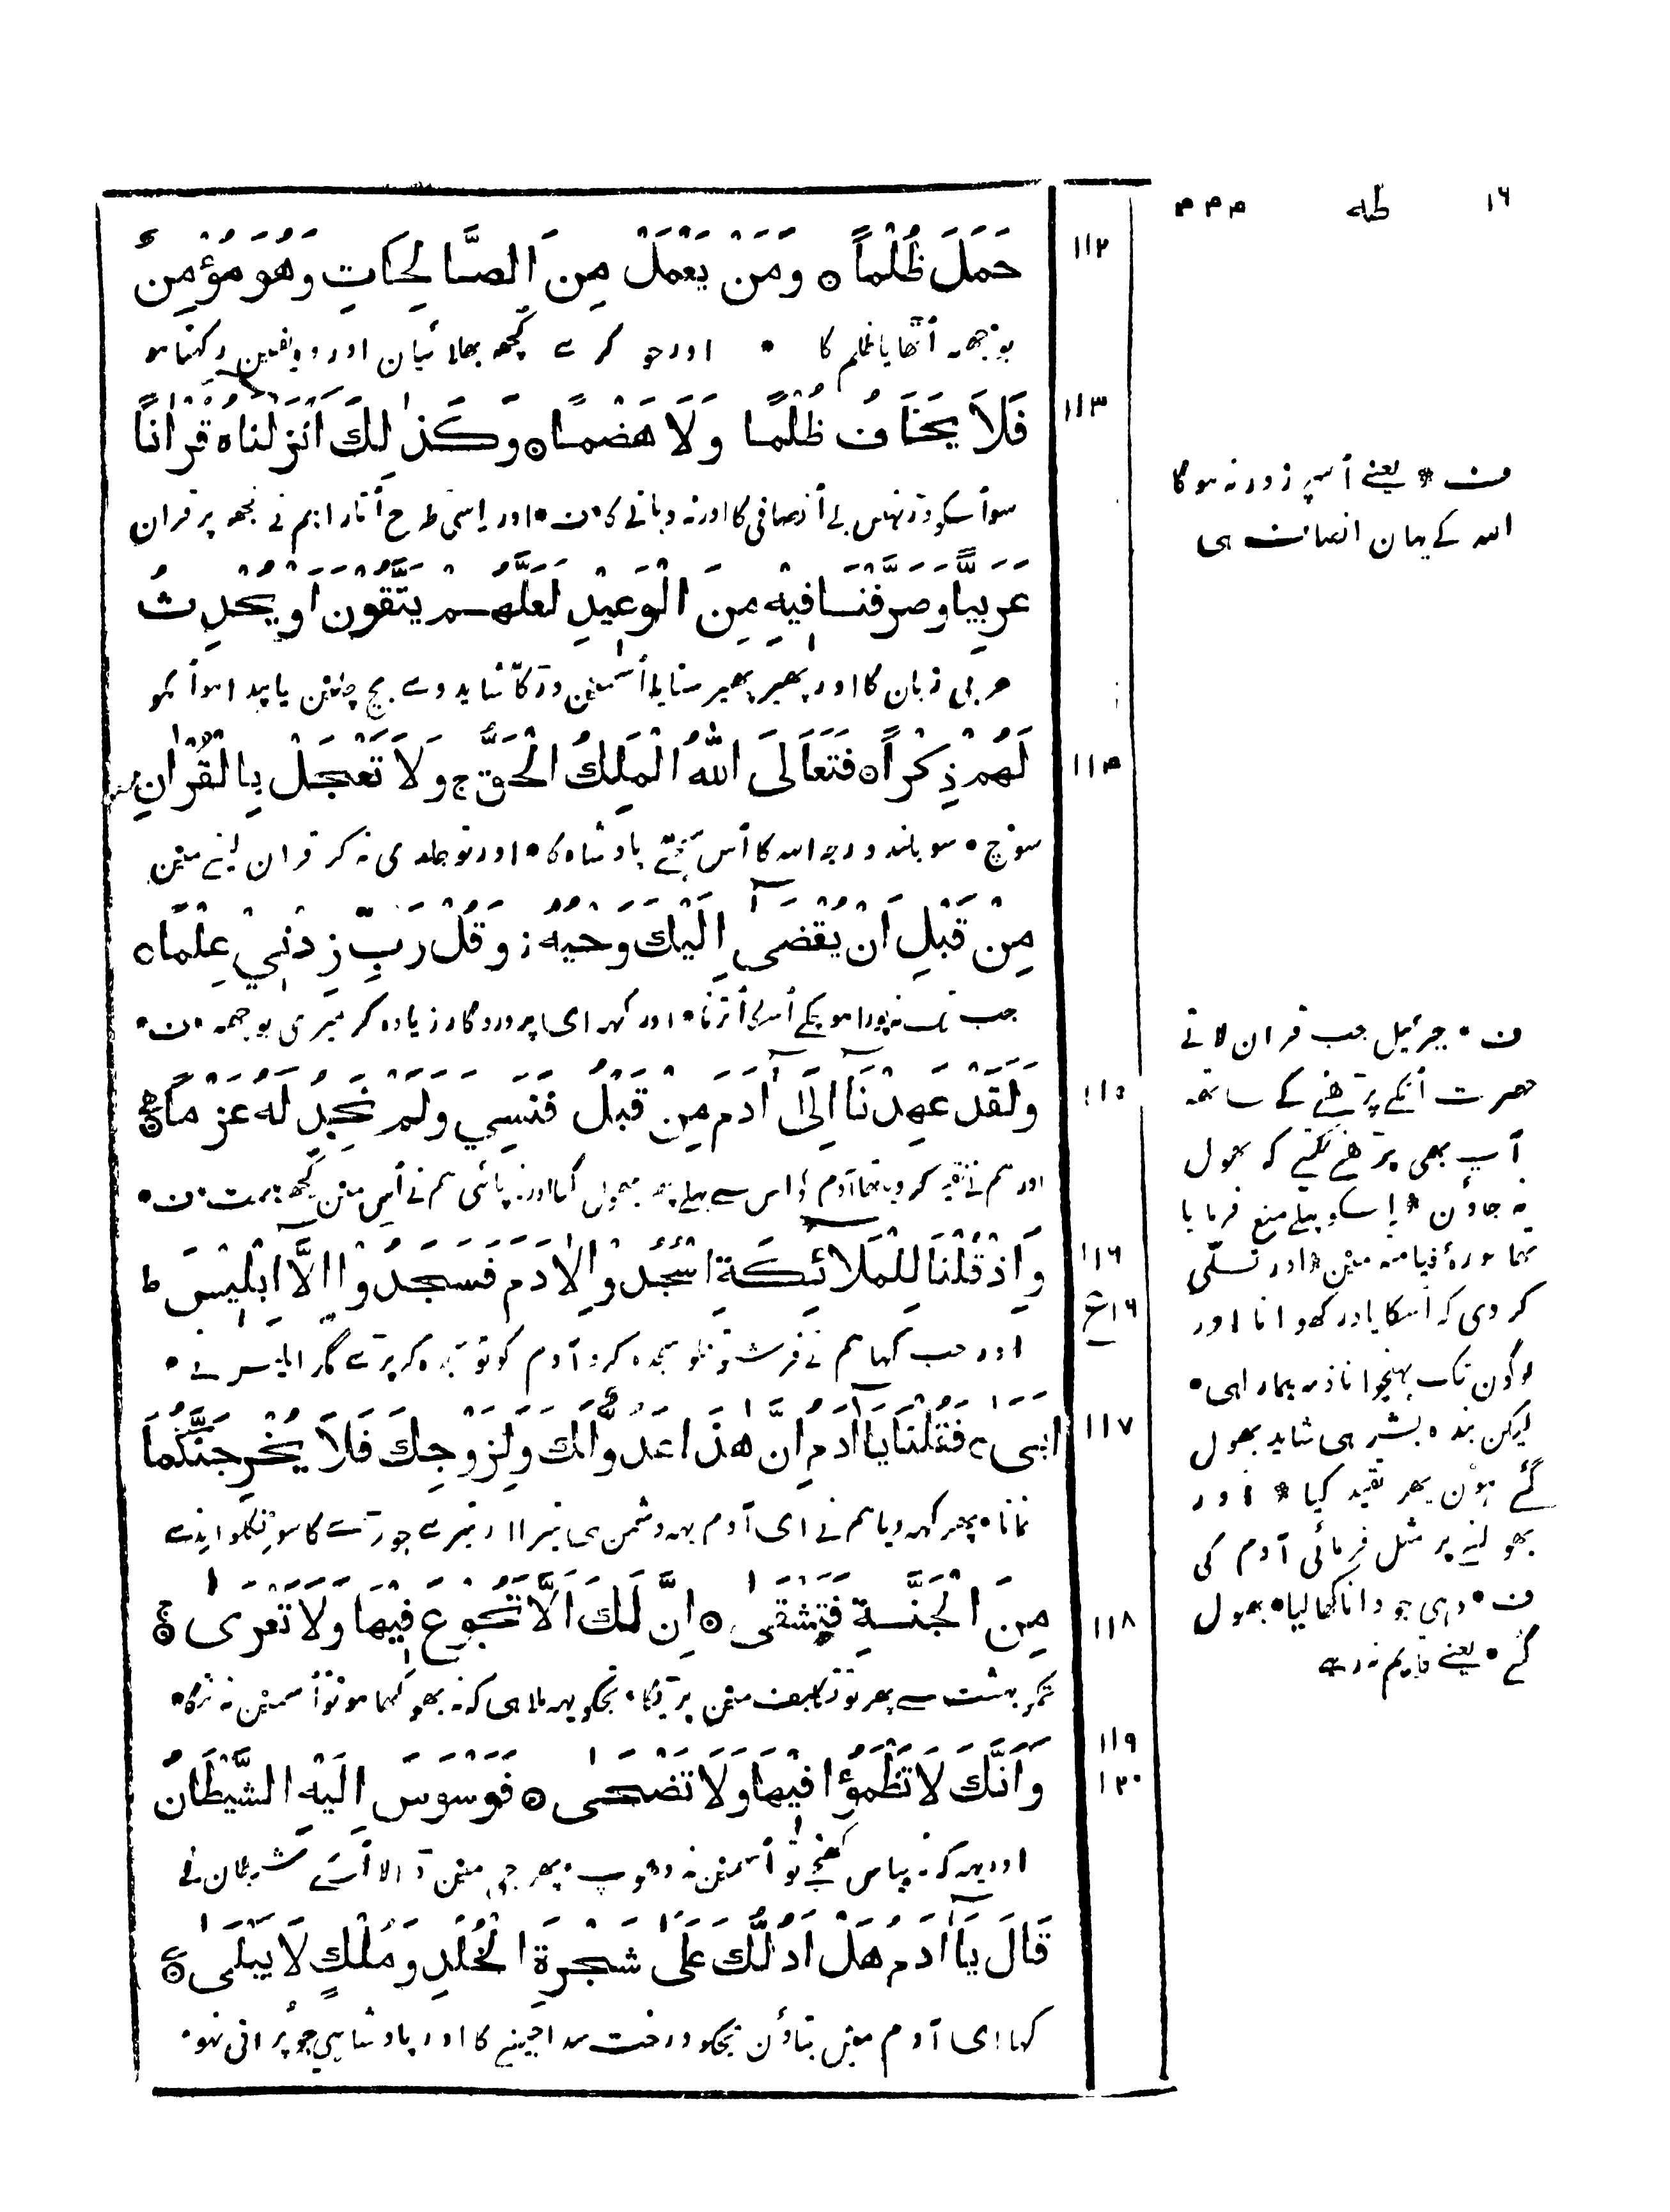 ۱۶ طه ۴۴۴
۱۱۲
حَمَلَ ظُلْماً ۝ وَمَنْ يَعْمَلْ مِنَ الصَّالِحَاتِ وَهُوَ مُؤْمِنٌ
بوجھہ اُٹھایا ظلم کا • اور جو کرے کُچھ بھلائیان اور وہ یقین رکھتا ہو
۱۱۳
فَلاَ يَخَافُ ظُلْمًا وَلَا هَضْمًا ۝ وَكَذٰلِكَ اَنْزَلْنَاهُ قُرْاٰناً
سو اُسکو ڈر نہیں بے اِنصافی کا اور نہ دبانے کا • ن • اور اِسی طرح اُتارا ہم نے تجھ پر قران
عَرَبِيًّا وَصَرَّفْنَا فِيْهِ مِنَ الْوَعِيْدِ لَعَلَّهُمْ يَتَّقُوْنَ اَوْ يُحْدِثُ
عربی زبان کا اور پھیر پھیر سنایا اُسمین ڈر کا شاید وے بچ چلین یا پیدا ہو اُنکو
۱۱۴
لَهُمْ ذِكْراً ۝ فَتَعَالَى اللّٰهُ الْمَلِكُ الْحَقُّ ج وَلاَ تَعْجَلْ بِالْقُرْاٰنِ
سونچ • سو بلند درجہ اللہ کا اُس سچّے بادشاہ کا • اور تو جلدی نہ کر قران لینے مین
مِنْ قَبْلِ اَنْ يُقْضٰى اِلَيْكَ وَحْيُهُ ز وَقُلْ رَبِّ زِدْنِيْ عِلْمًا ۝
جب تک نہ پورا ہو چکے اُسکا اُترنا • اور کہہ ای پروردگار زیادہ کر میری بوجھہ • ن •
۱۱۵
وَلَقَدْ عَهِدْنَا اِلٰى اٰدَمَ مِنْ قَبْلُ فَنَسِيَ وَلَمْ نَجِدْ لَهُ عَزْمًا ۝
اور ہم نے تقید کر دیا تھا آدم کو اس سے پہلے پھر بھول گیا اور نہ پائی ہم نے اُس مین کُچھ ہمت • ن •
۱۱۶
۱۶ع
وَاِذْ قُلْنَا لِلْمَلَائِكَةِ اسْجُدُوْا لِاٰدَمَ فَسَجَدُوْا اِلَّا اِبْلِيْسَ ط
اور جب کہا ہم نے فرشتونکو سجدہ کرو آدم کو تو سجدہ کر پڑے مگر ابلیس نے •
۱۱۷
اَبٰى ۝ فَقُلْنَا يَا اٰدَمُ اِنَّ هٰذَا عَدُوٌّ لَكَ وَلِزَوْجِكَ فَلاَ يُخْرِجَنَّكُمَا
نمانا • پھر کہہ دیا ہم نے ای آدم یہہ دشمن ہی تیرا اور تیرے جوڑے کا سو نکلوا نہ دے
۱۱۸
مِنَ الْجَنَّةِ فَتَشْقٰى ۝ اِنَّ لَكَ اَلَّا تَجُوْعَ فِيْهَا وَلَا تَعْرٰى ۝
تمکو بہشت سے پھر تو تکلیف مین پڑیگا • تجکو یہہ ملا ہی کہ نہ بھوکھا ہو تو اُسمین نہ ننگا •
۱۱۹
۱۲۰
وَاَنَّكَ لَا تَظْمَؤُا فِيْهَا وَلَا تَضْحٰى ۝ فَوَسْوَسَ اِلَيْهِ الشَّيْطَانُ
اور یہہ کہ نہ پیاس کھینچے تو اُسمین نہ دھوپ • پھر جی مین ڈالا اُسکے شیطان نے
قَالَ يَا اٰدَمُ هَلْ اَدُلُّكَ عَلٰى شَجَرَةِ الْخُلْدِ وَمُلْكٍ لَا يَبْلٰى ۝
کہا ای آدم مین بتاؤن تجکو درخت سدا جینے کا اور پادشاہی جو پُرانی نہو •
ن * یعنے اُسپر زور نہ ہوگا
اللہ کے یہان انصاف ہی
ن • جبرئیل جب قران لاتے
حضرت اُنکے پڑھنے کے ساتھہ
آپ بھی پڑھنے لگتے کہ بھول
نہ جاوُن * اِسکو پہلے منع فرمایا
تھا سورۂ قیامہ مین * اور تسلّی
کر دی کہ اُسکا یاد رکھوانا اور
لوگون تک پہنچوانا ذمہ ہمارا ہی •
لیکن بندہ بشر ہی شاید بھول
گئے ہون پھر تقید کیا * اور
بھولنے پر مثل فرمائی آدم کی
ن • وہی جو دانا کھا لیا • بھول
گئے • یعنے قایم نہ رہے